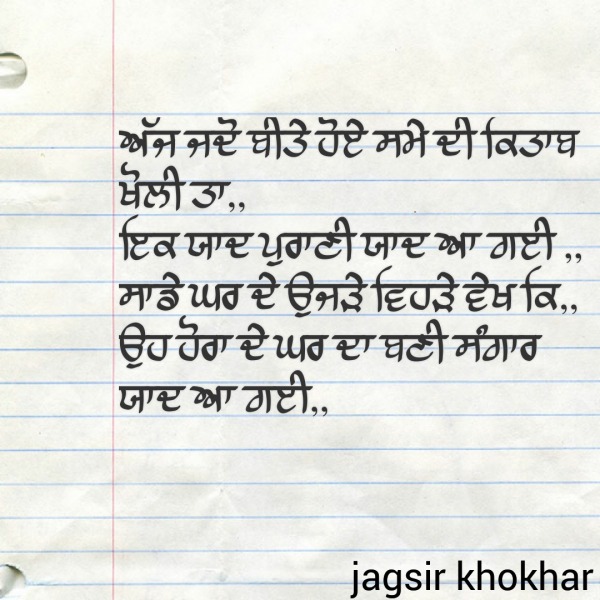 ਅੱਜ ਜਦੋ ਬੀਤੇ ਹੋਏ ਸਮੇ ਦੀ ਕਿਤਾਬ
ਖੋਲੀ ਤਾ,,
ਇਕ ਯਾਦ ਪੁਰਾਣੀ ਯਾਦ ਆ ਗਈ ,,
ਸਾਡੇ ਘਰ ਦੇ ਉਜੜੇ ਵਿਹੜੇ ਵੇਖ ਕਿ,,
ਉਹ ਹੋਰਾ ਦੇ ਘਰ ਦਾ ਬਣੀ ਸੰਗਾਰ
ਯਾਦ ਆ ਗਈ,,
jagsir khokhar